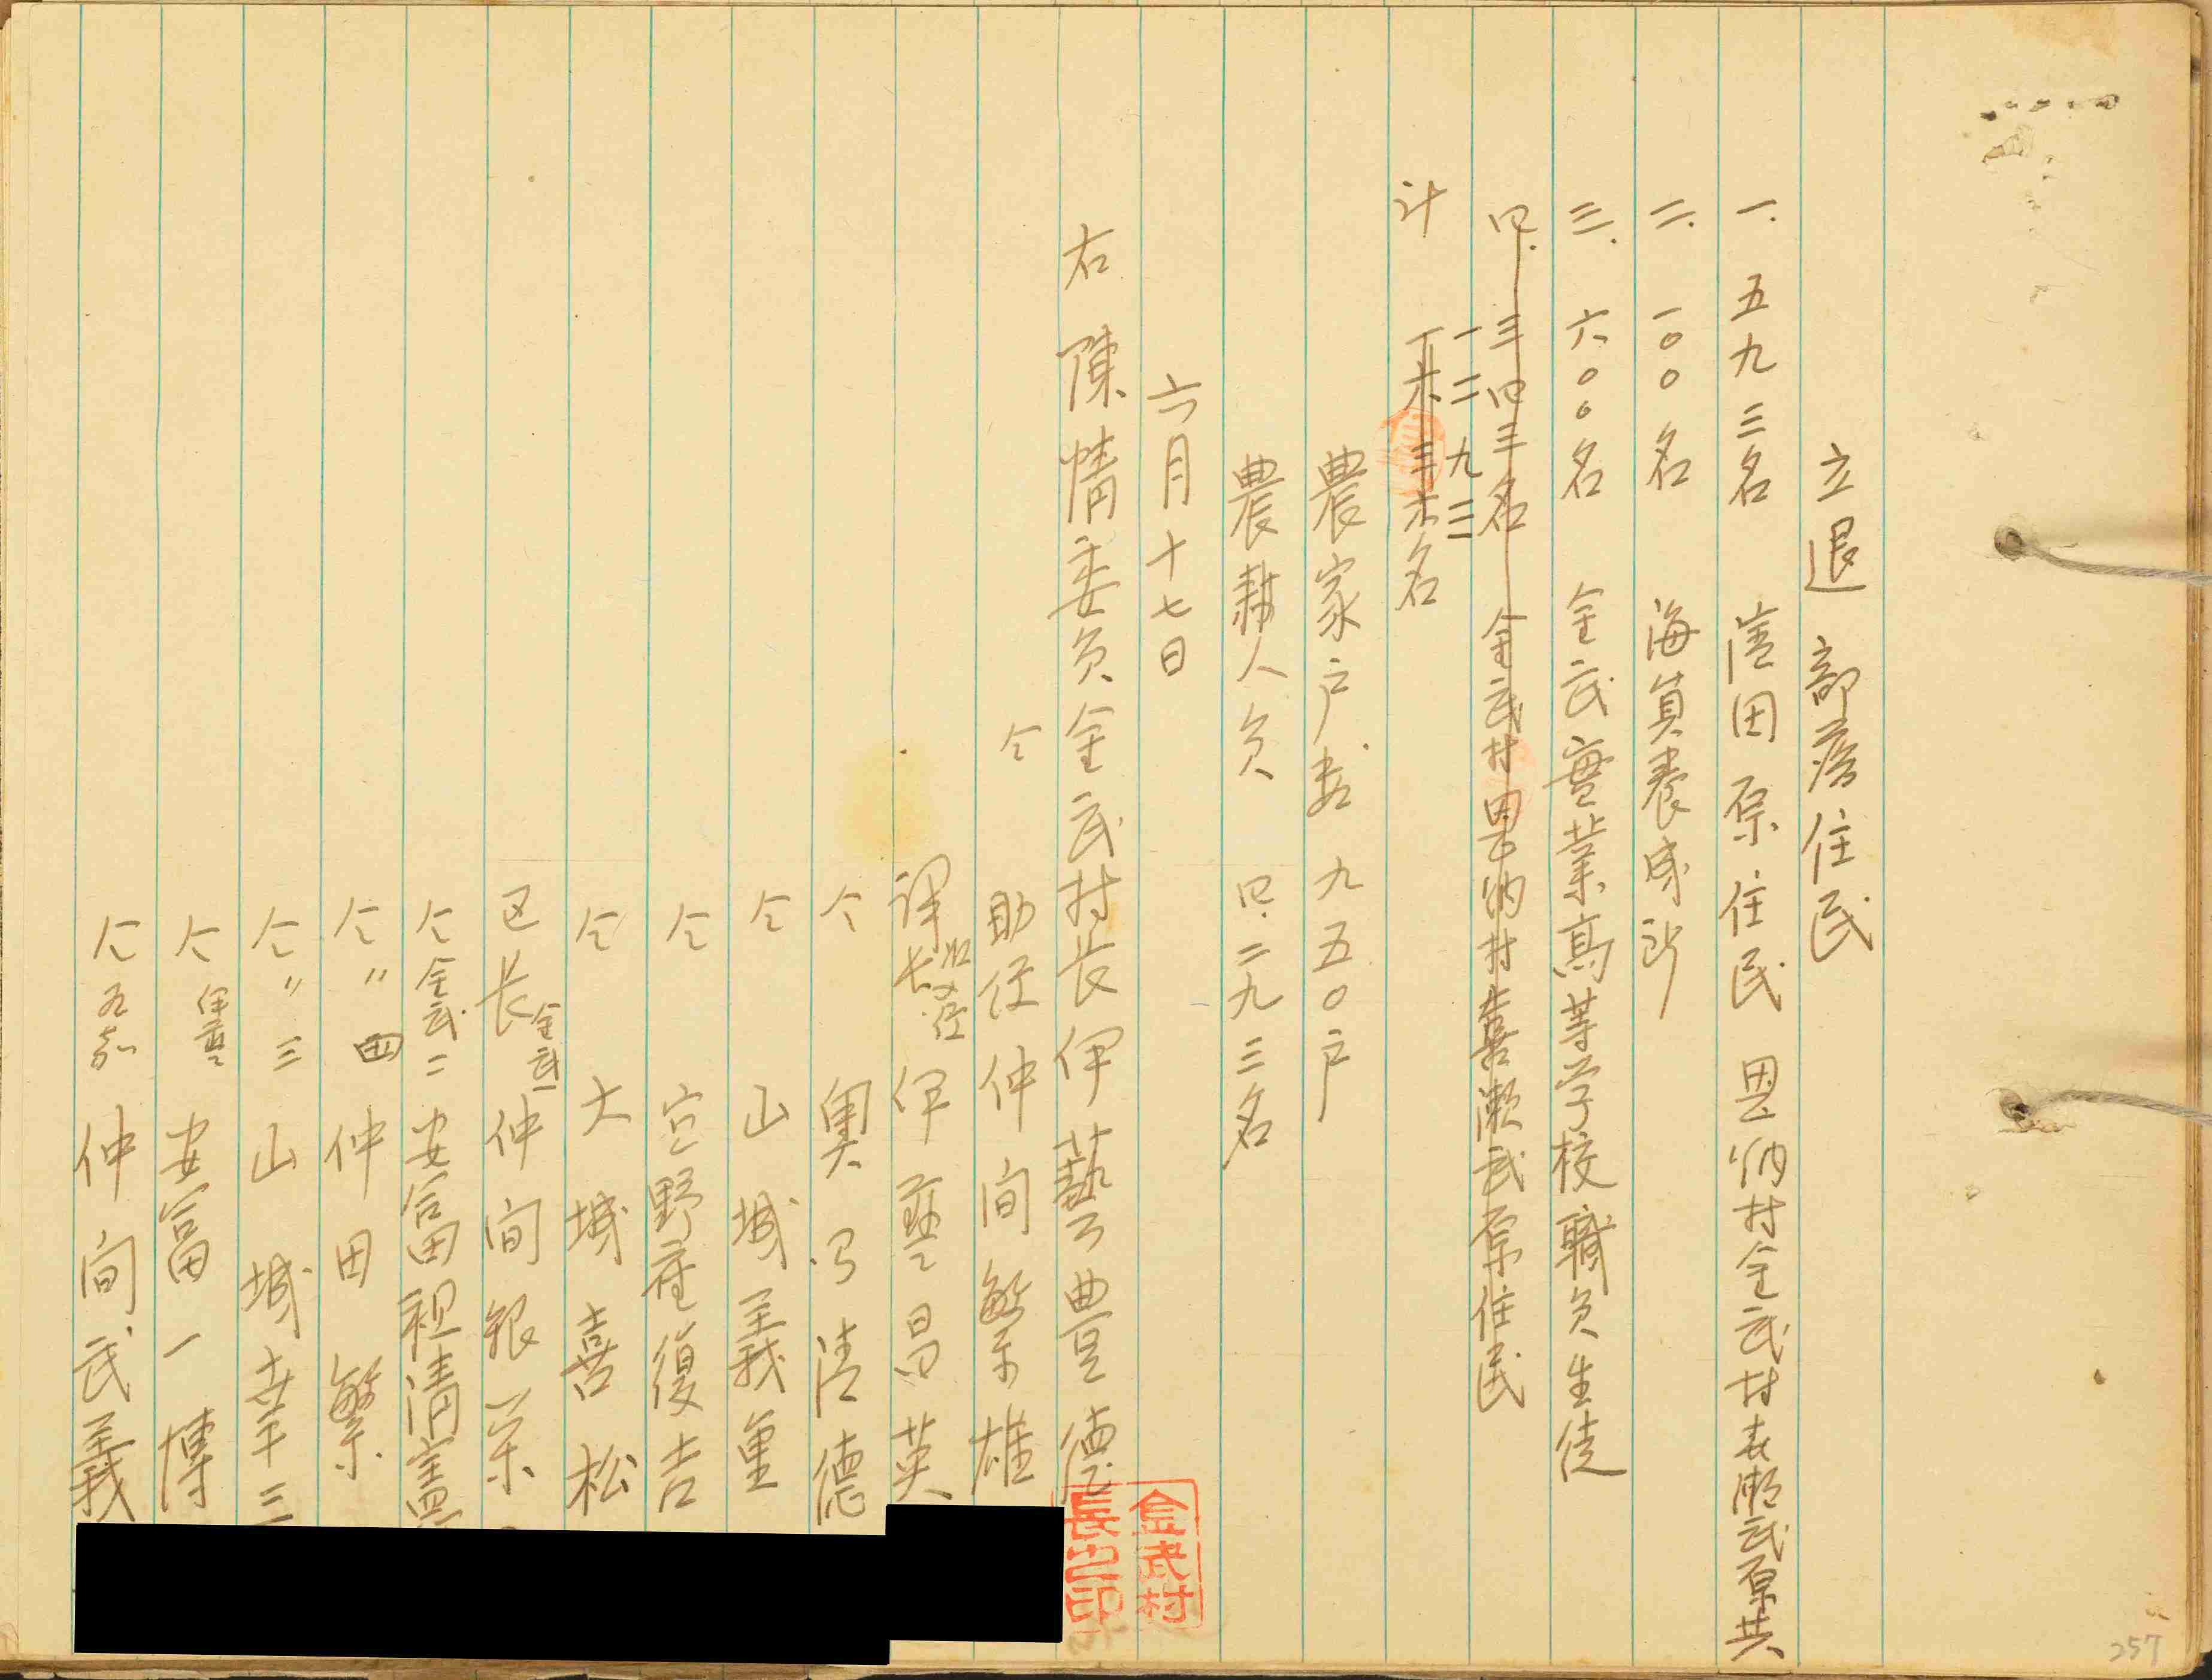 立退部落住民
一. 五九三名 信田原住民 恩納村金武村喜瀬武原共
二. 一〇〇名 海員養成所
三. 六〇〇名 金武實業髙等学校職員生徒
四. 三四三名 金武村恩納村喜瀬武原住民
一二九三
計 名
農家戸数 九五〇戸
農耕人員 四.二九三名
六月十七日
右陳情委員金武村長伊藝豊德
仝 助役仲間繁雄
議長 伊藝昌英
仝 奥間清德
仝 山城義重
仝 宜野座復吉
仝 大城喜松
区長 金武一 仲間銀栄
仝金武二 安富祖清喜
仝〃四 仲田繁
仝〃三 山城幸三
仝 伊藝 安富一博
仝 仲間武義
金武村長之印
257